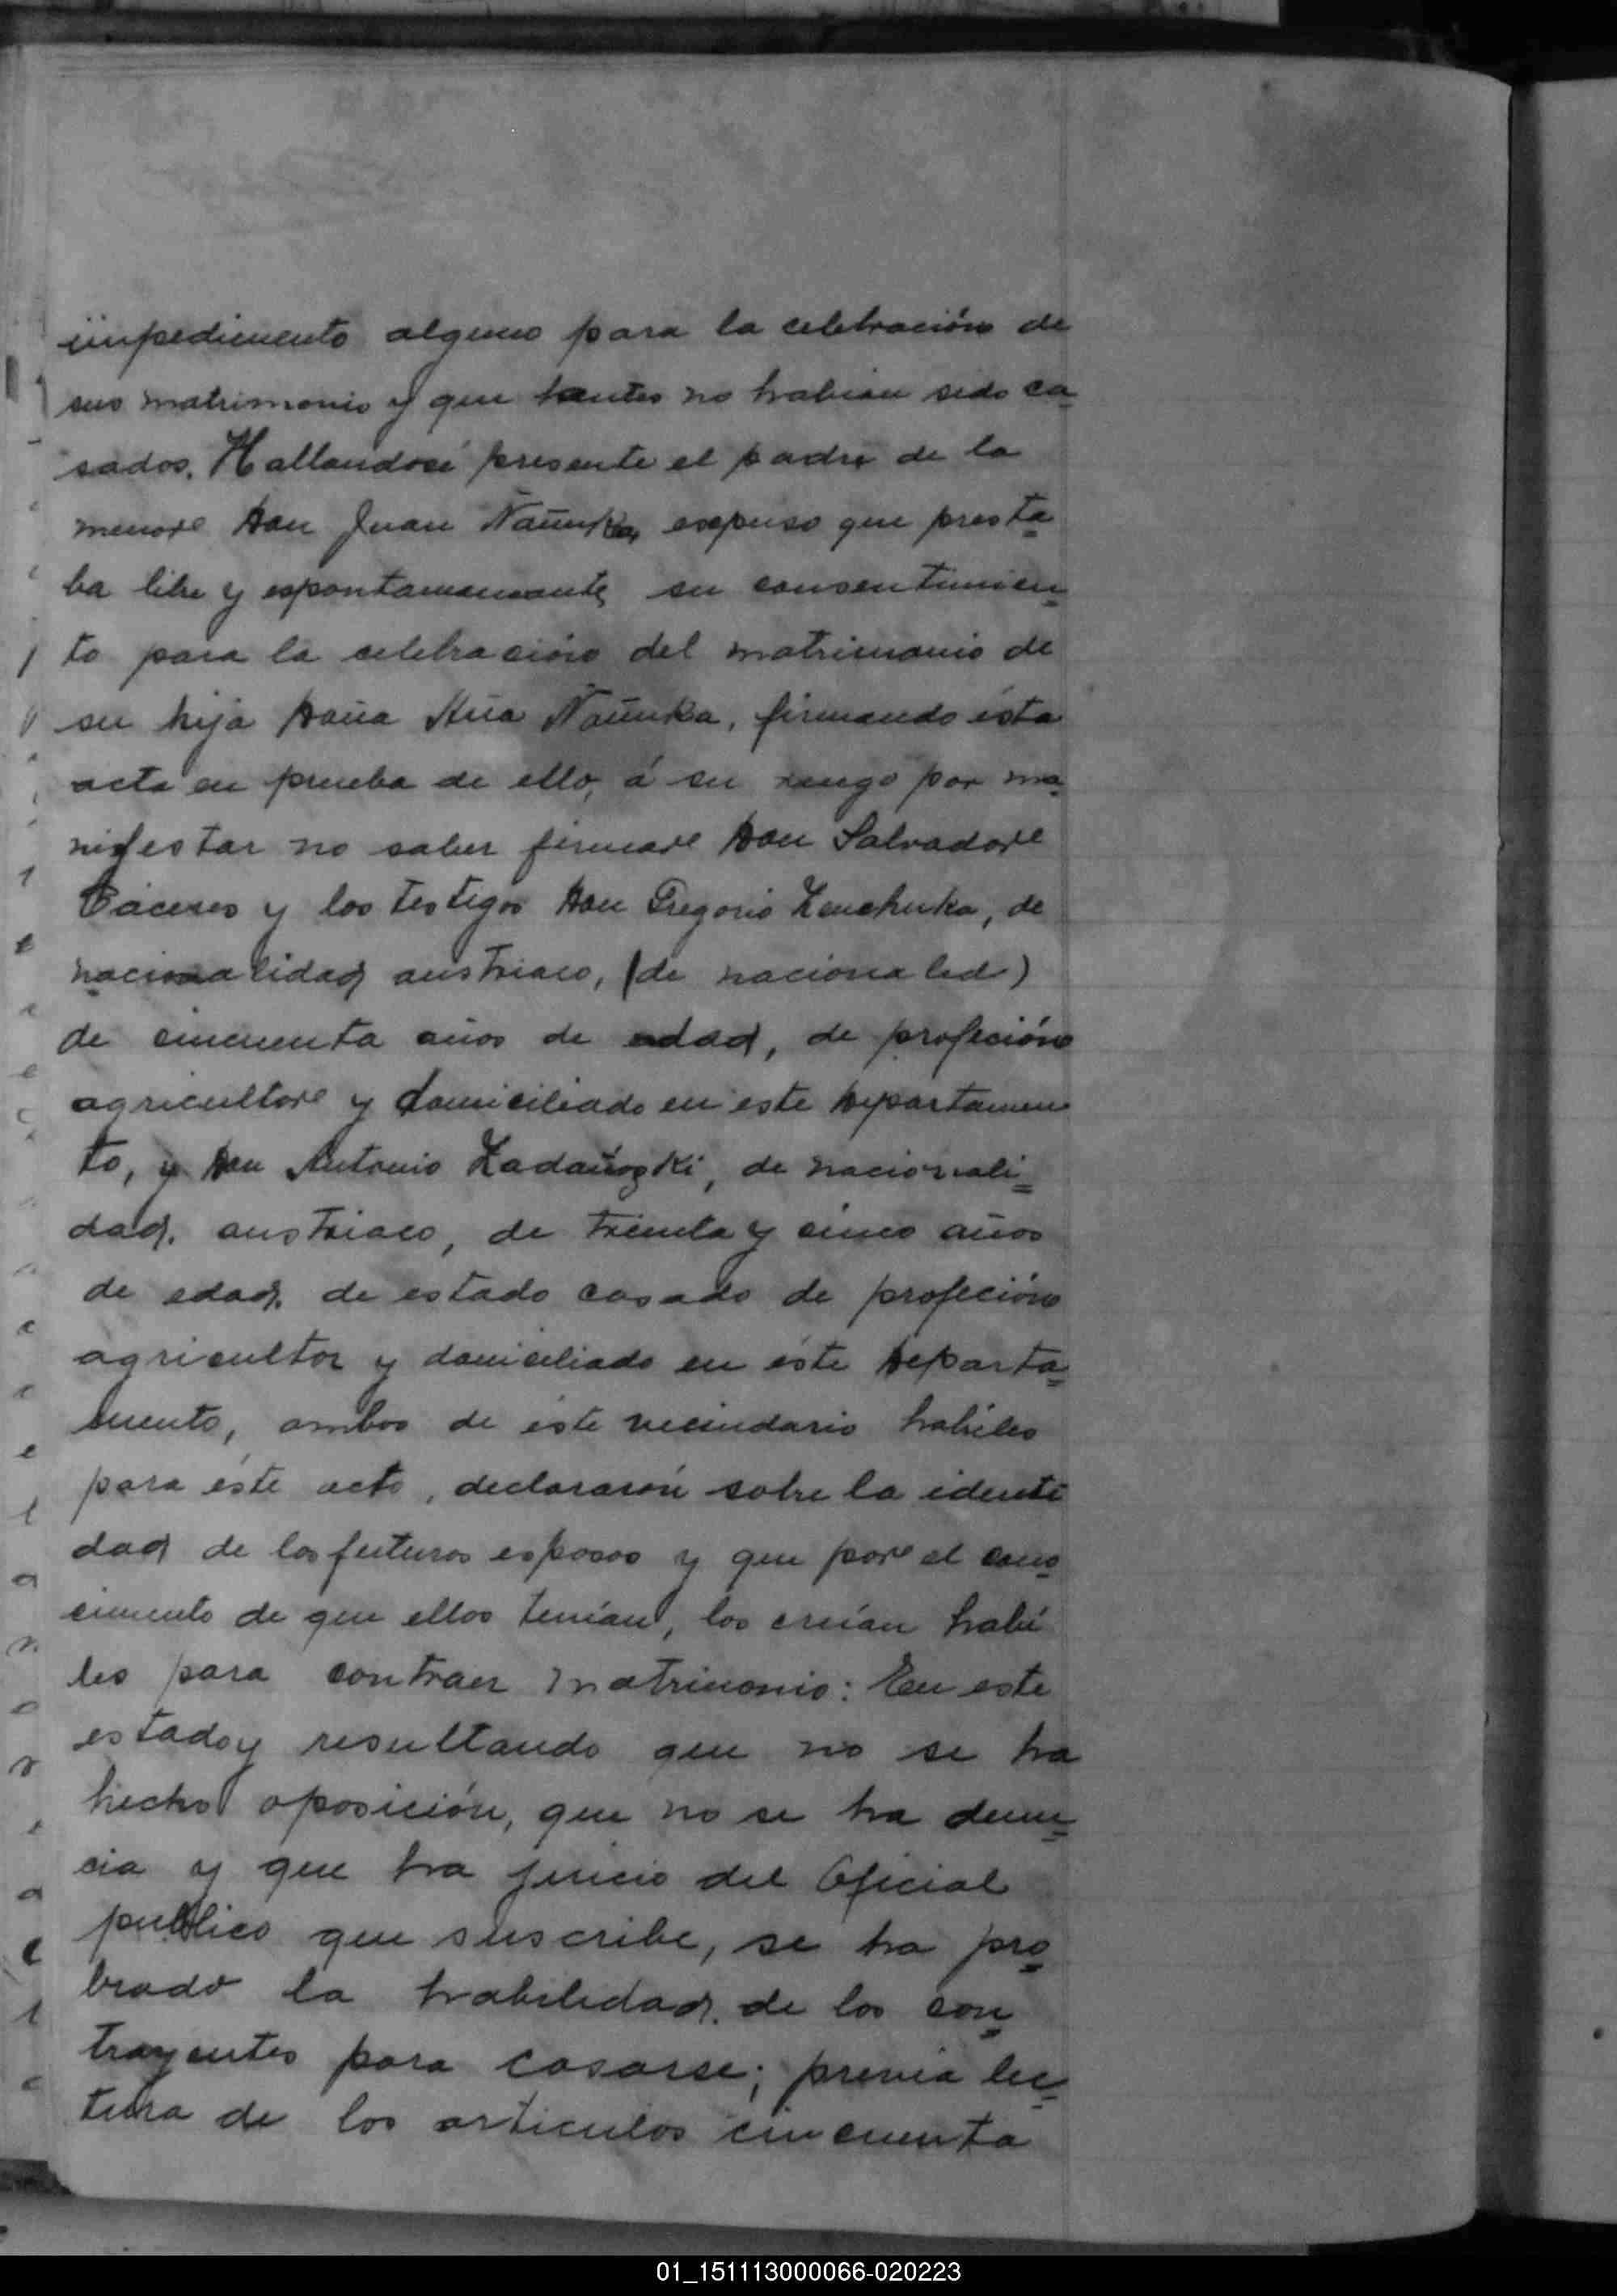 impedimento alguno para la celebración de
sus matrimonio y que antes no habian sido ca
sados. Hallandosé presente el padre de la
menor Don Juan Naunka, espuso que presta
ba libre y espontamamante su consentimien
to para la celebración del matrimonio de
su hija Doña Ana Naunka, firmando ésta
acta en prueba de ello, á su ruego por ma
nifestar no saber firmar Don Salvador
Cáceres y los testigos Don Gregorio Zenchuka, de
nacionalidad austriaco, (de nacionalid)
de cincuenta años de edad, de profeción
agricultor y domiciliado en este Departamen
to, y Don Antonio Zadañoski, de nacionali
dad. austriaco, de treinta y cinco años
de edad, de estado casado de profeción
agricultor y domiciliado en éste Departa
mento, ambos de éste vecindario habiles
para éste acto, declararón sobre la identi
dad de los futuros esposos y que por el cono
cimiento de que ellos tenían, los creían habi
les para contraer matrimonio: En este
estado y resultando que no se ha
hecho oposición, que no se ha denun
cia y que ha juicio del Oficial
publico que suscribe, se ha pro
brado la habilidad. de los con
trayentes para casarse; previa lec
tura de los articulos cincuenta
01_151113000066-020223